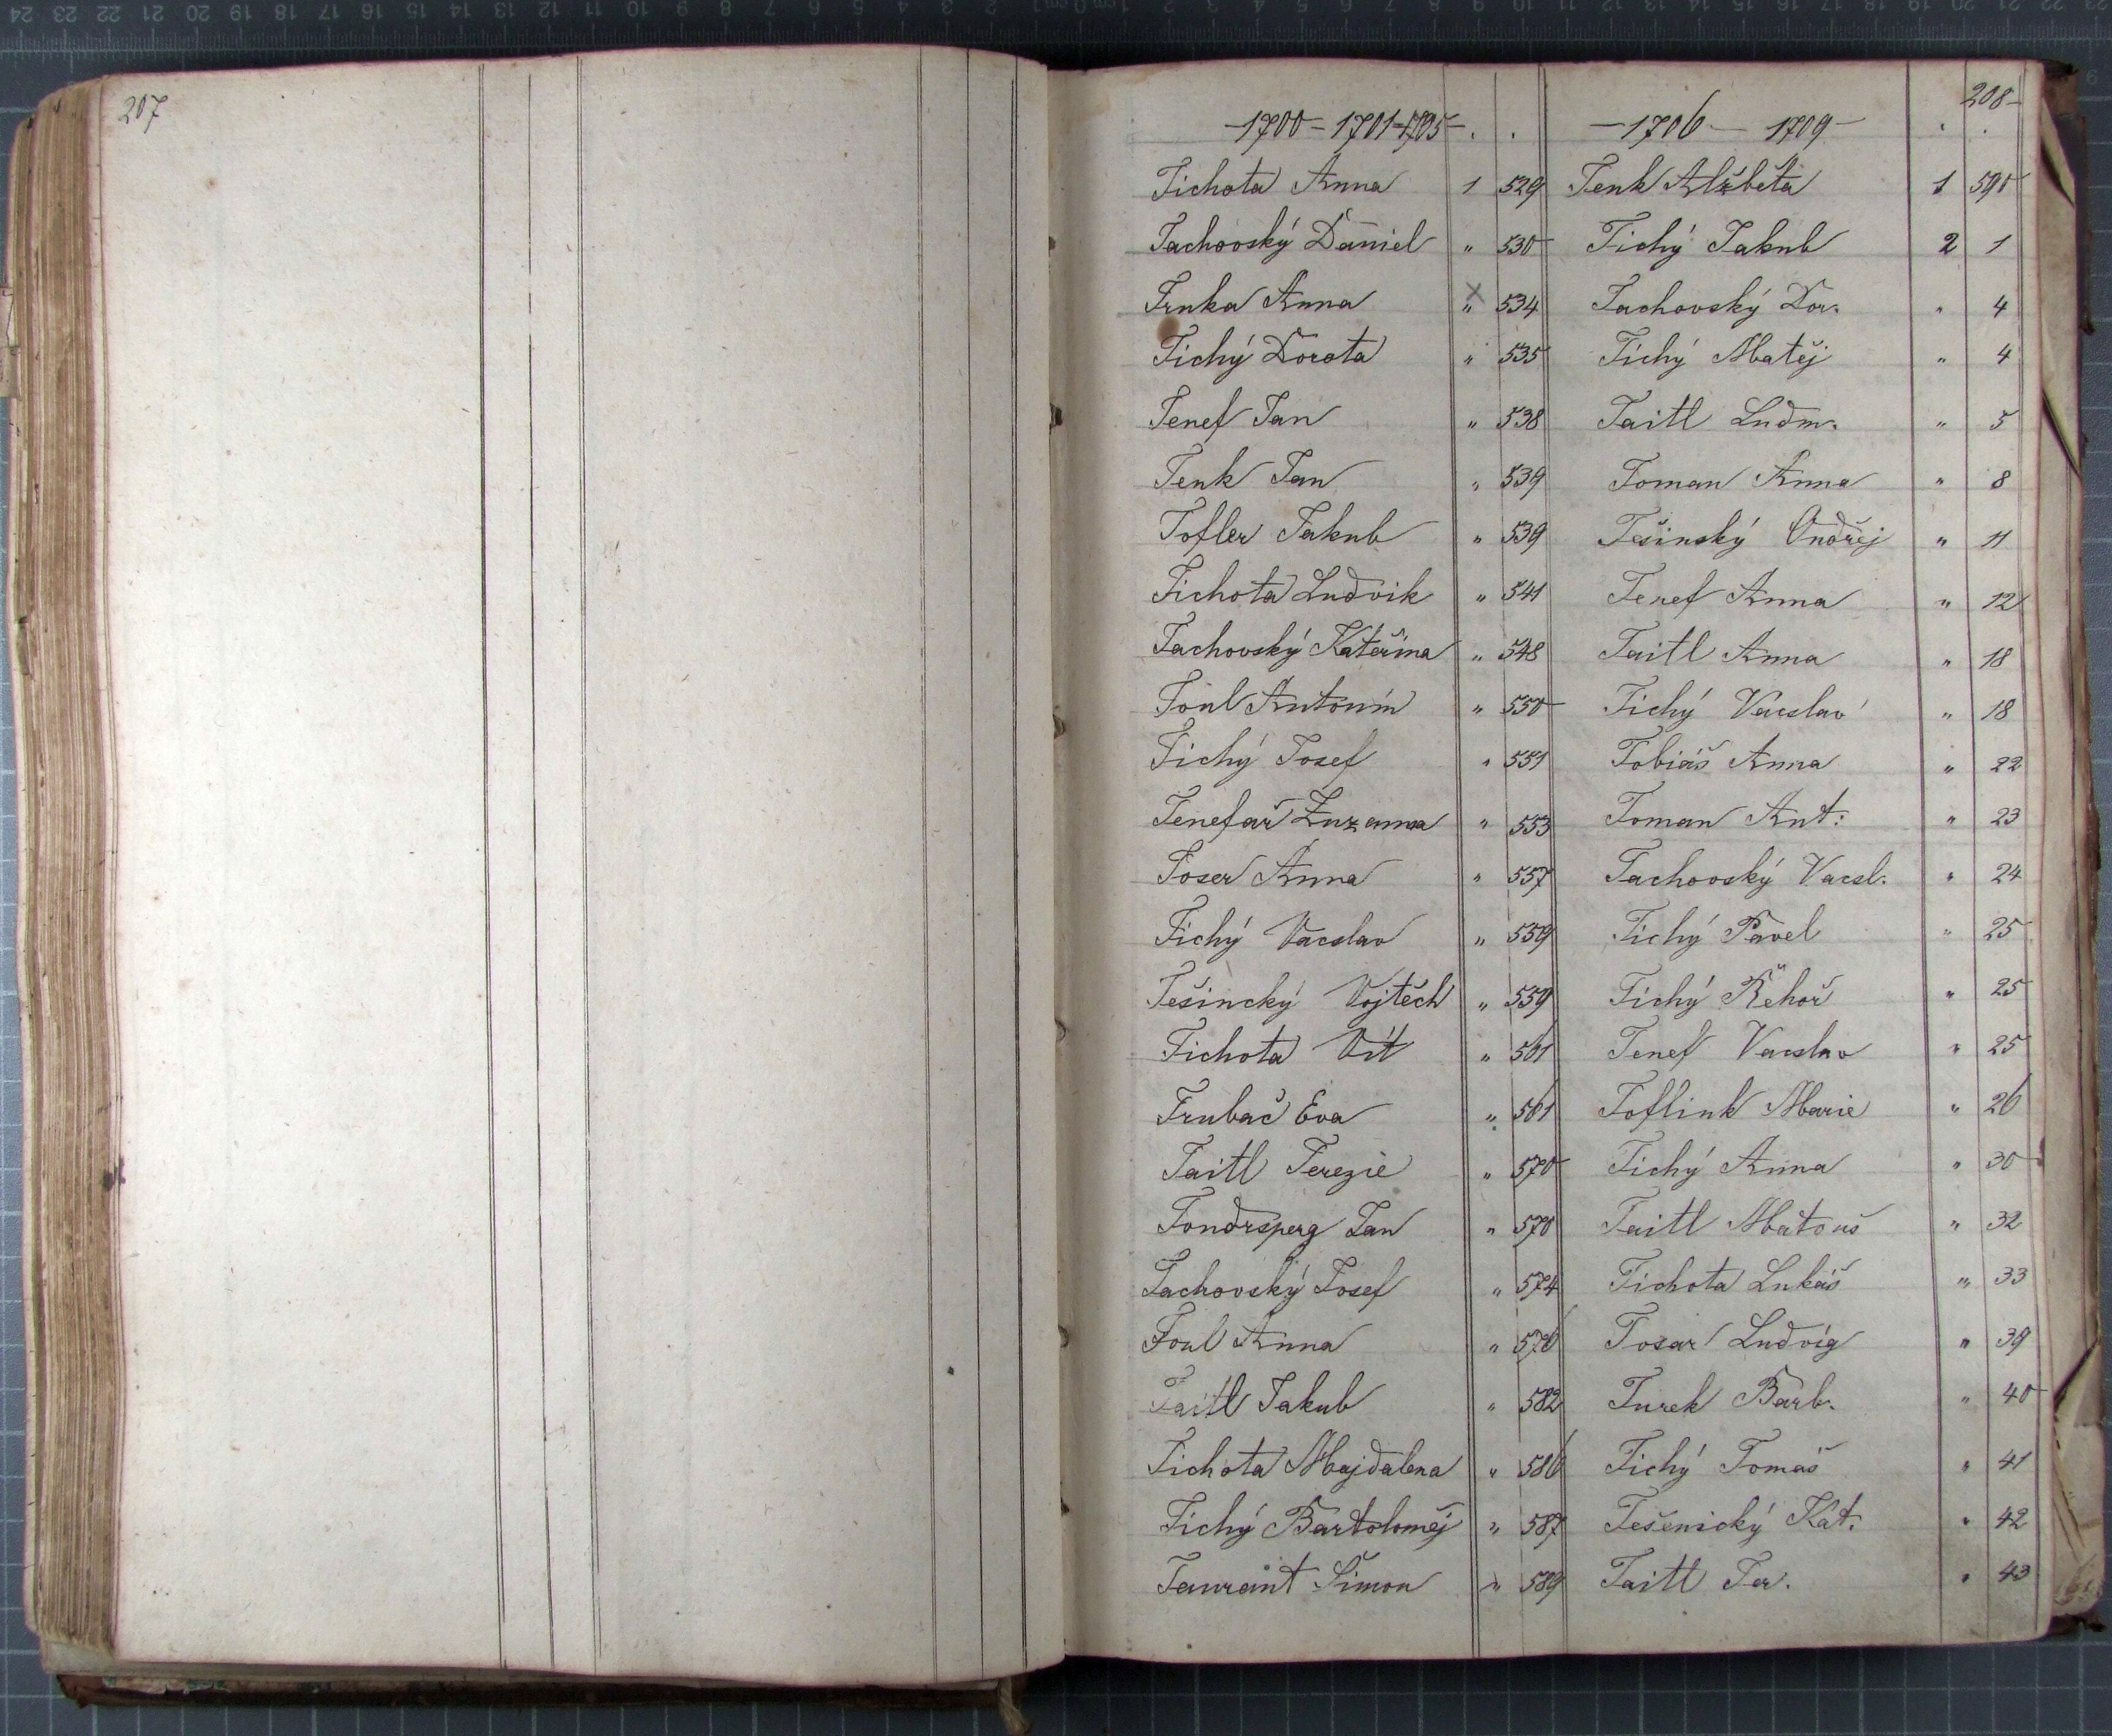 207
208
-1700-1701-1705- . .
Tichota Anna 1 529
Tachovský Daniel " 530
Trnka Anna " 534
Tichý Dorota " 535
Tenef Jan " 538
Tenk Jan " 539
Tofler Jakub " 539
Tichota Ludvik " 541
Tachovský Kateřina " 548
Toul Antonín " 550
Tichý Josef " 551
Tenefař Zuzanna " 553
Toser Anna " 557
Tichý Vacslav " 559
Tešincký Vojtěch " 559
Tichota Vít " 561
Trubač Eva " 561
Taitl Terezie " 570
Tondrsperg Jan " 570
Tachovský Josef " 574
Toul Anna " 576
Taitl Jakub " 582
Tichota Majdalena " 586
Tichý Bartoloměj " 587
Taurant Šimon " 589
-1706-1709- . .
Tenk Alžběta 1 590
Tichý Jakub 2 1
Tachovský Dor. " 4
Tichý Matěj " 4
Taitl Ludm. " 5
Toman Anna " 8
Tešinský Ondřej " 11
Tenef Anna " 12
Taitl Anna " 18
Tichý Vácslav " 18
Tobiáš Anna " 22
Toman Ant: " 23
Tachovský Vacsl. " 24
Tichý Pavel " 25
Tichý Řehoř " 25
Tenef Vacslav " 25
Toflink Marie " 26
Tichý Anna " 30
Taitl Matouš " 32
Tichota Lukáš " 33
Tosar Ludvíg " 39
Turek Barb. " 40
Tichý Tomáš " 41
Tešenický Kat. " 42
Taitl Ter. " 43